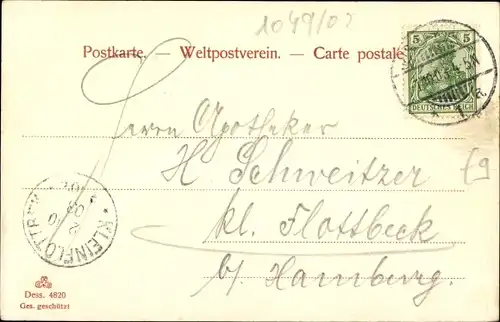 1049/02
Postkarte. — Weltpostverein. — Carte postale
5 5
DEUTSCHES REICH
Herrn Apotheker
H. Schweitzer
kl. Flottbeck
b/ Hamburg.
KLEINFLOTTBEK
Dess. 4820
Ges. geschützt